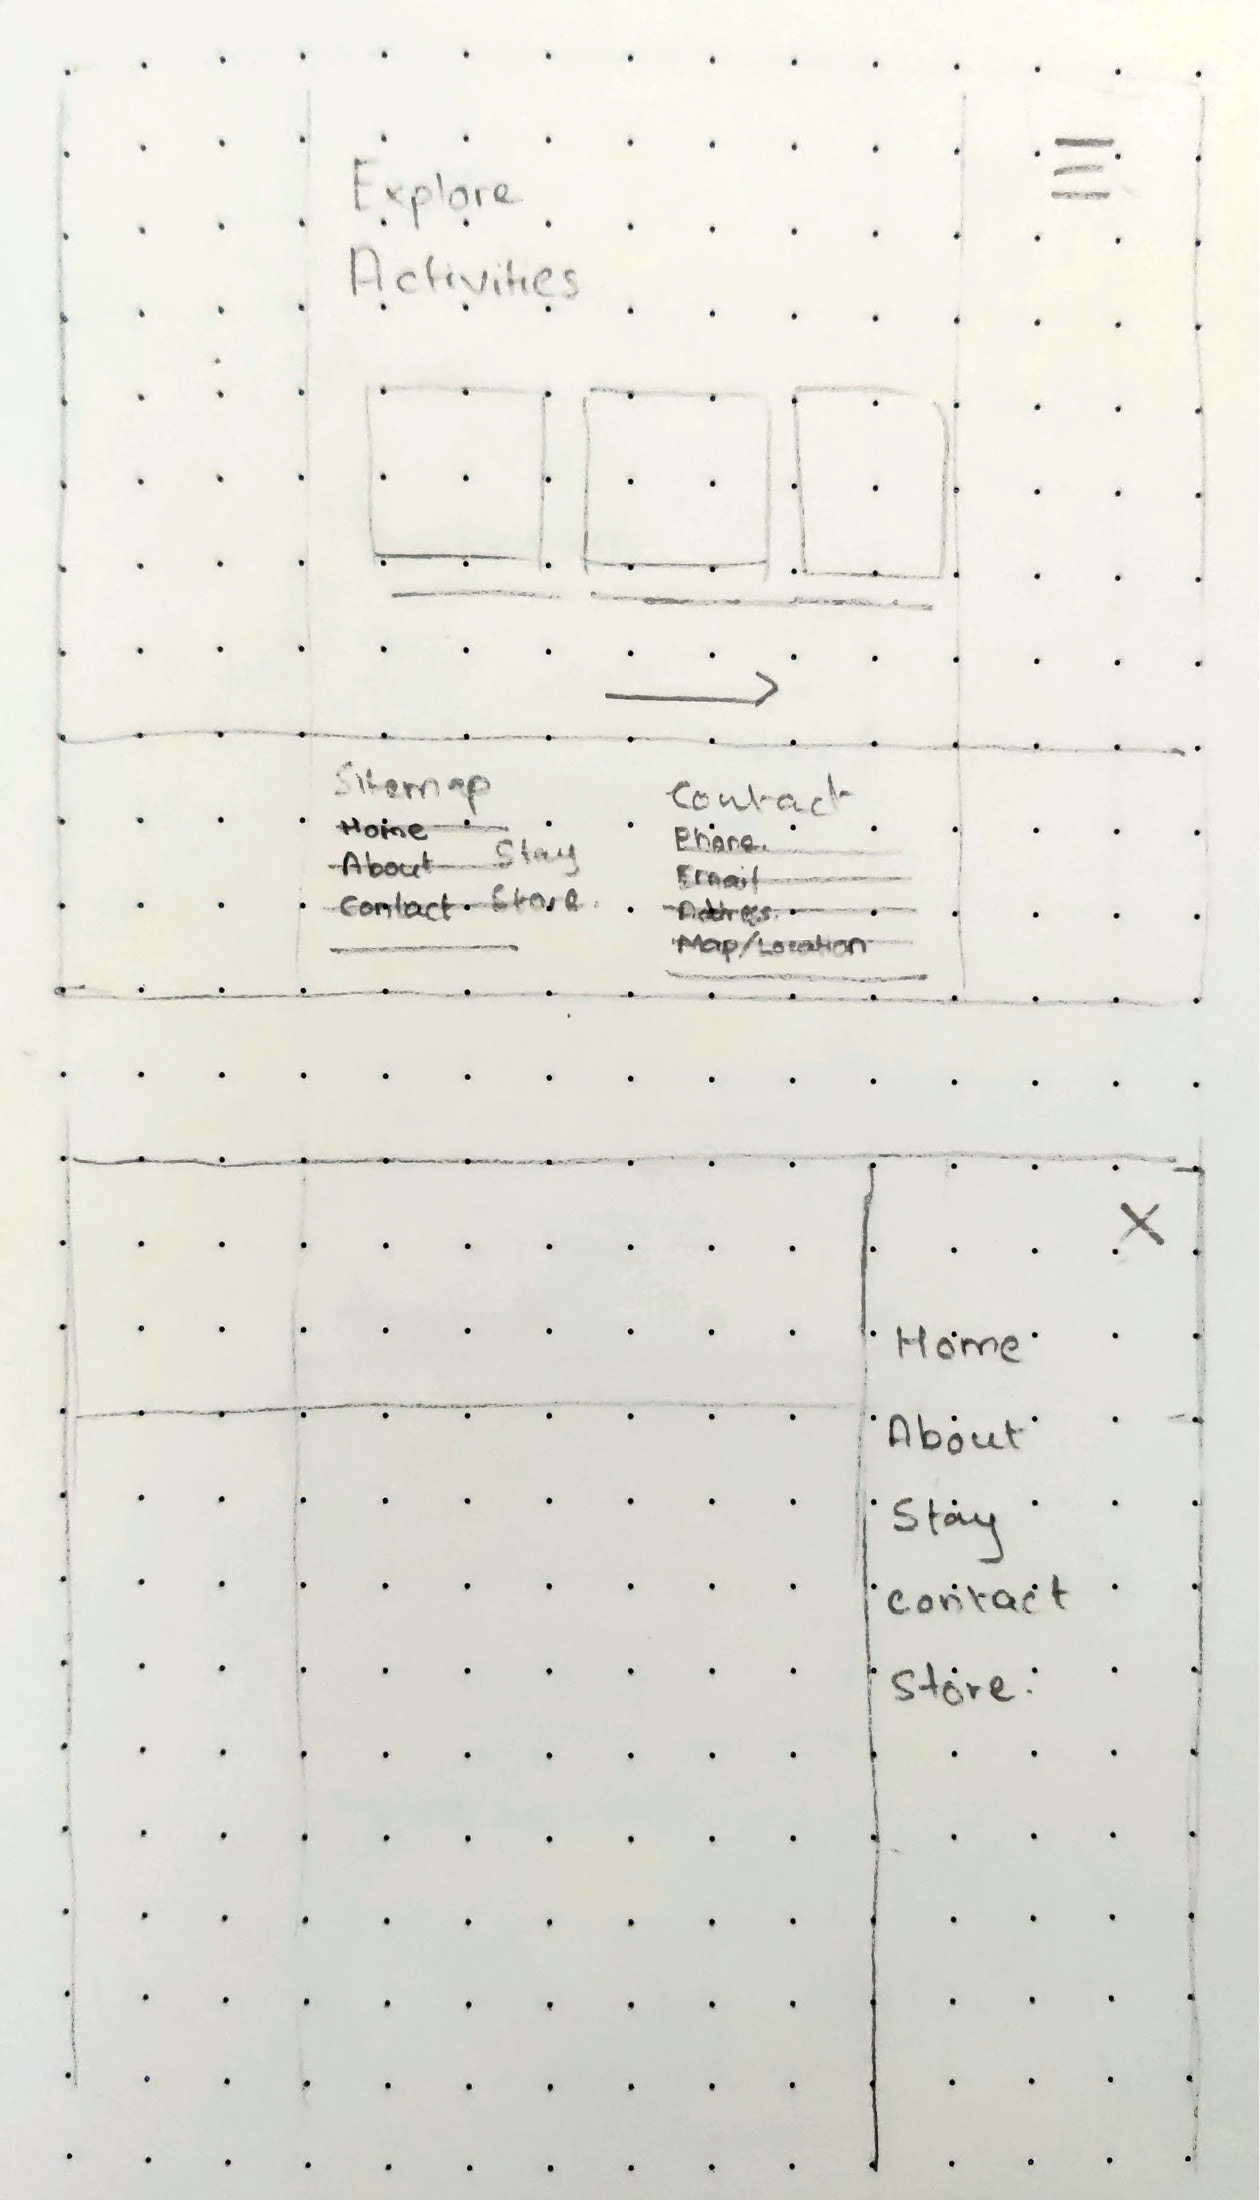 Explore
Activities
Sitemap
Home
About Stay
Contact Store.
Contact
Phone.
Email
Address.
Map/Location
X
Home
About
Stay
contact
Store.